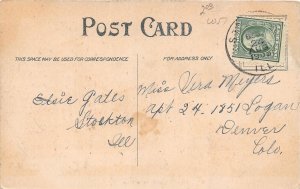 POST CARD
THIS SPACE MAY BE USED FOR CORRESPONDENCE.
THIS FOR ADDRESS ONLY.
Elsie Gates
Stockton
Ill
Miss Vera Meyers
Apt 24 - 1851 Logan
Denver
Colo.